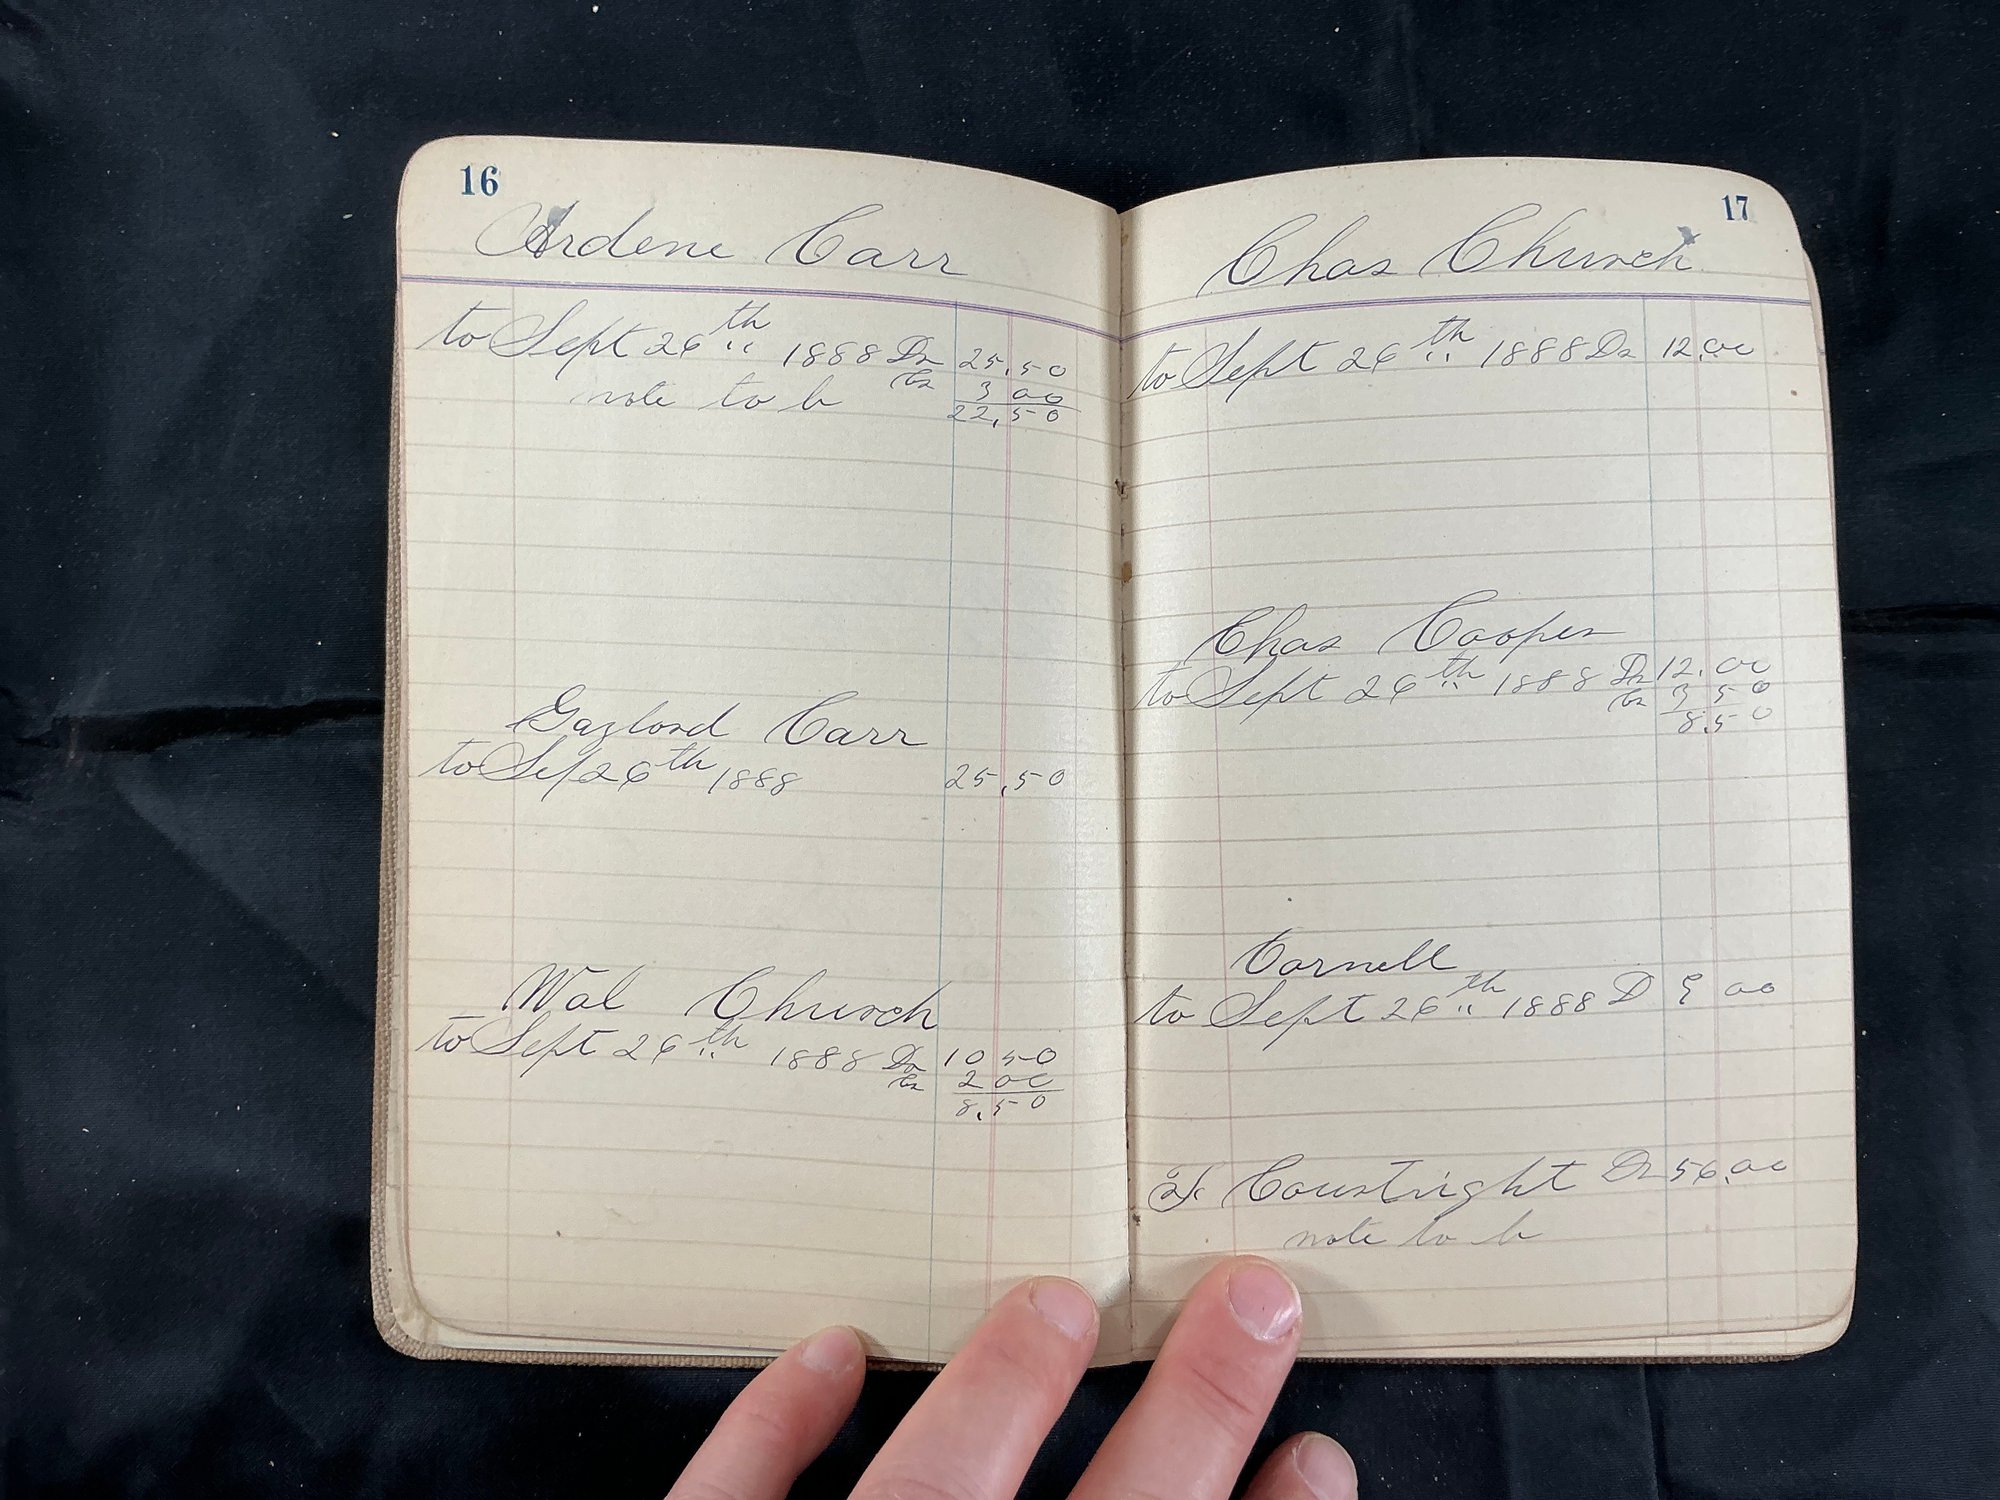 16
Ardene Carr
to Sept 26th 1888 Dr 25,50
note to b Cr 3 00
22,50
Gaylord Carr
to Sep 26th 1888 25,50
Wal Church
to Sept 26th 1888 Dr 10 50
Cr 2 00
8,50
17
Chas Church
to Sept 26th 1888 Dr 12,00
Chas Cooper
to Sept 26th 1888 Dr 12.00
Cr 3 50
8.50
Cornell
to Sept 26th 1888 D 00
Courtright Dr 56,00
note to b